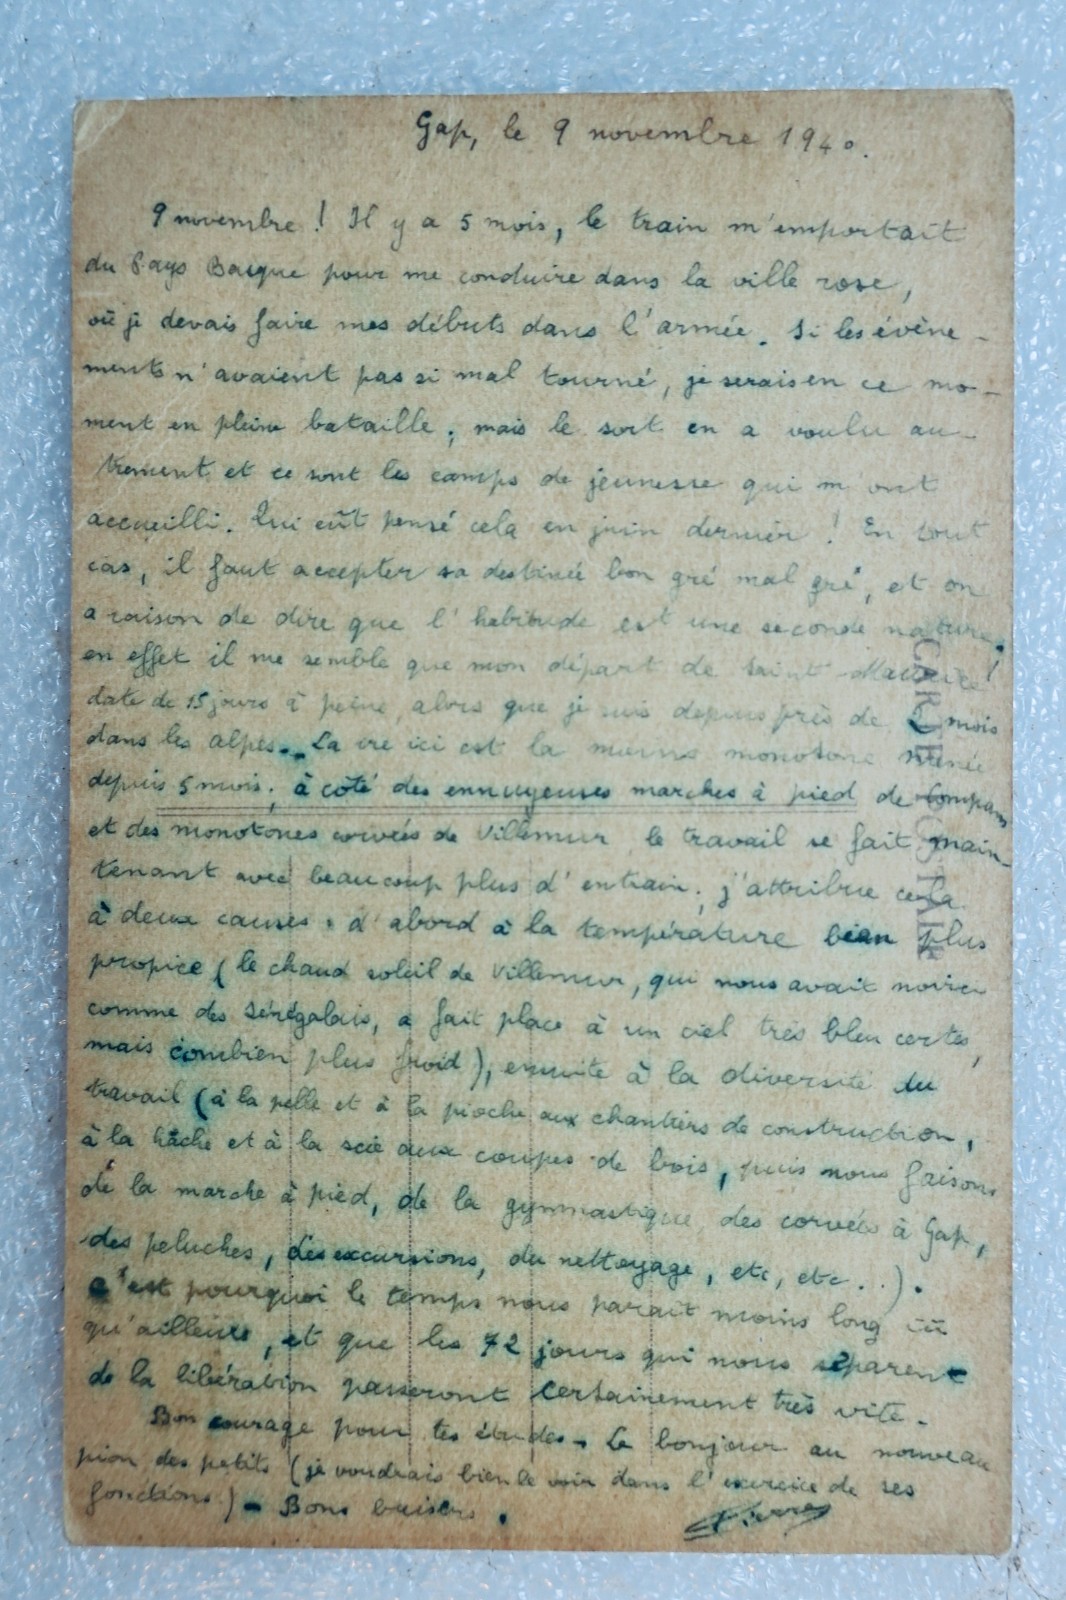 Gap, le 9 novembre 1940.
9 novembre ! Il y a 5 mois, le train m'emportait
du Pays Basque pour me conduire dans la ville rose,
où je devais faire mes débuts dans l'armée. Si les évène-
ments n'avaient pas si mal tourné, je serais en ce mo-
ment en pleine bataille ; mais le sort en a voulu au-
trement et ce sont les camps de jeunesse qui m'ont
accueilli. Qui eût pensé cela en juin dernier ! En tout
cas, il faut accepter sa destinée bon gré mal gré, et on
a raison de dire que l'habitude est une seconde nature.
en effet il me semble que mon départ de Saint-Maurice
date de 15 jours à peine, alors que je suis depuis près de 2 mois
dans les alpes. La vie ici est la moins monotone menée
depuis 5 mois ; à côté des ennuyeuses marches à pied de Compans
et des monotones corvées de Villemur le travail se fait main-
tenant avec beaucoup plus d'entrain ; j'attribue cela
à deux causes : d'abord à la température bien plus
propice (le chaud soleil de Villemur, qui nous avait noircis
comme des Sénégalais, a fait place à un ciel très bleu certes,
mais combien plus froid), ensuite à la diversité du
travail (à la pelle et à la pioche aux chantiers de construction,
à la hâche et à la scie aux coupes de bois, puis nous faisons
de la marche à pied, de la gymnastique, des corvées à Gap,
des peluches, des excursions, du nettoyage, etc, etc...).
C'est pourquoi le temps nous parait moins long ici
qu'ailleurs, et que les 72 jours qui nous séparent
de la libération passeront certainement très vite.
Bon courage pour tes études. Le bonjour au nouveau
pion des petits (je voudrais bien le voir dans l'exercice de ses
fonctions) - Bons baisers.
Pierre
CARTE POSTALE